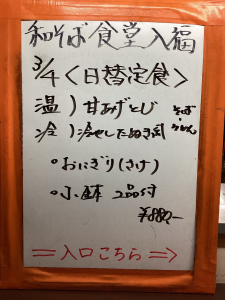 和そば食堂入福
3/4<日替定食>
温)甘あげとじ そば・うどん
冷)冷やしたぬき
。おにぎり(さけ)
。小鉢 2品付
¥880-
=入口こちら⇒